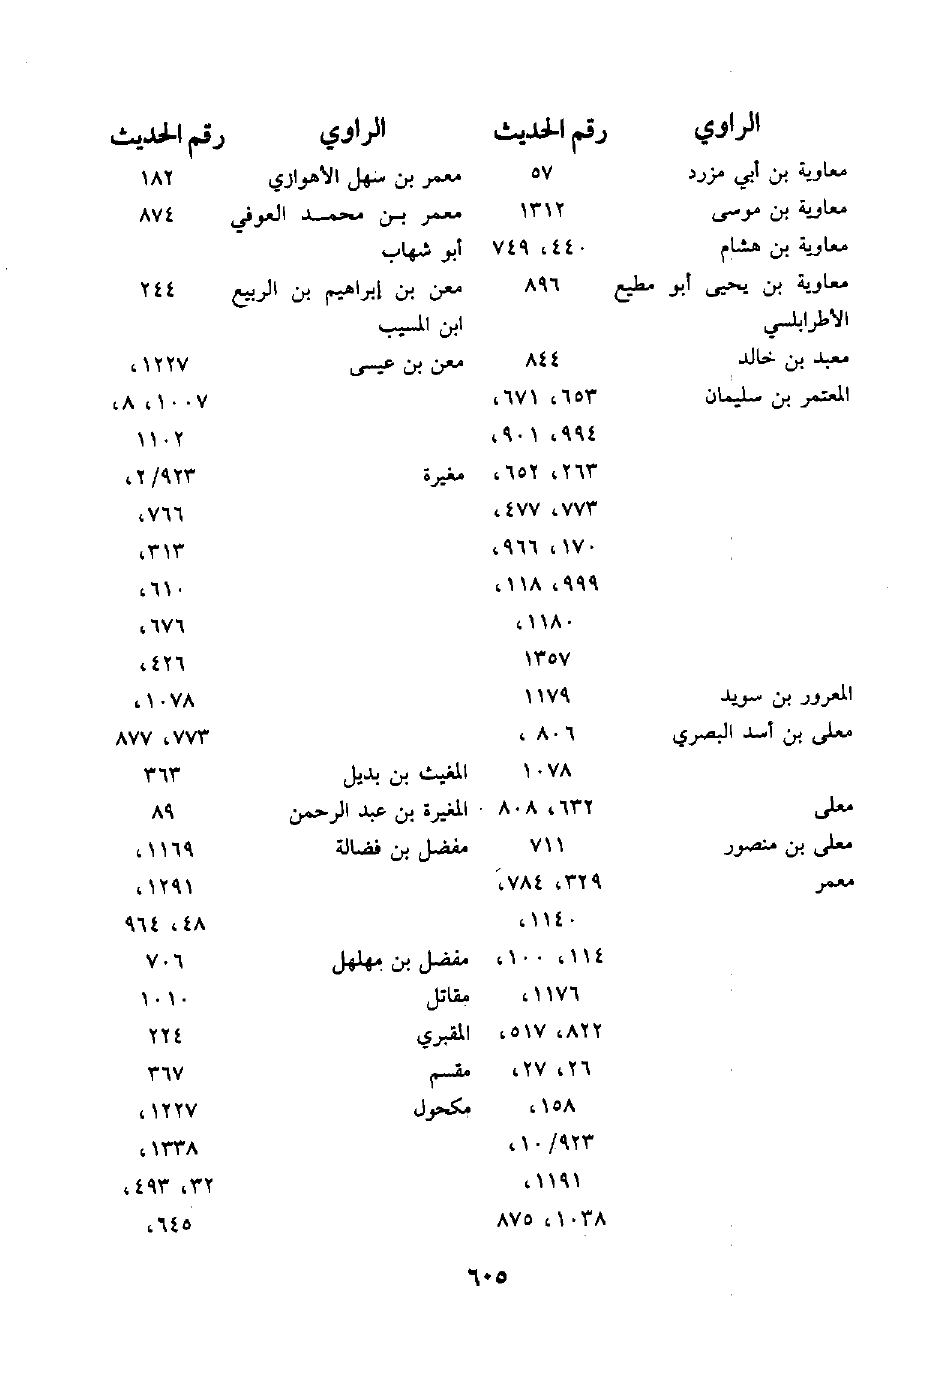 الراوي رقم الحديث
معاوية بن أبي مزرد ٥٧
معاوية بن موسى ١٣١٢
معاوية بن هشام ٤٤٠، ٧٤٩
معاوية بن يحيى أبو مطيع ٨٩٦
الأطرابلسي
معبد بن خالد ٨٤٤
المعتمر بن سليمان ٦٥٣، ٦٧١،
٩٩٤، ٩٠١،
٢٦٣، ٦٥٢،
٧٧٣، ٤٧٧،
١٧٠، ٩٦٦،
٩٩٩، ١١٨،
١١٨٠،
١٣٥٧
المعرور بن سويد ١١٧٩
معلى بن أسد البصري ٨٠٦ ،
١٠٧٨
معلى ٦٣٢، ٨٠٨
معلى بن منصور ٧١١
معمر ٣٢٩، ٧٨٤،
١١٤٠،
١١٤، ١٠٠،
١١٧٦،
٨٢٢، ٥١٧،
٢٦، ٢٧،
١٥٨،
١٠/٩٢٣،
١١٩١،
١٠٣٨، ٨٧٥
الراوي رقم الحديث
معمر بن سهل الأهوازي ١٨٢
معمر بن محمد العوفي ٨٧٤
أبو شهاب
معن بن إبراهيم بن الربيع ٢٤٤
ابن المسيب
معن بن عيسى ١٢٢٧،
١٠٠٧، ٨،
١١٠٢
مغيرة ٢/٩٢٣،
٧٦٦،
٣١٣،
٦١٠،
٦٧٦،
٤٢٦،
١٠٧٨،
٧٧٣، ٨٧٧
المغيث بن بديل ٣٦٣
المغيرة بن عبد الرحمن ٨٩
مفضل بن فضالة ١١٦٩،
١٢٩١،
٤٨، ٩٦٤
مفضل بن مهلهل ٧٠٦
مقاتل ١٠١٠
المقبري ٢٢٤
مقسم ٣٦٧
مكحول ١٢٢٧،
١٣٣٨،
٣٢، ٤٩٣،
٦٤٥،
٦٠٥